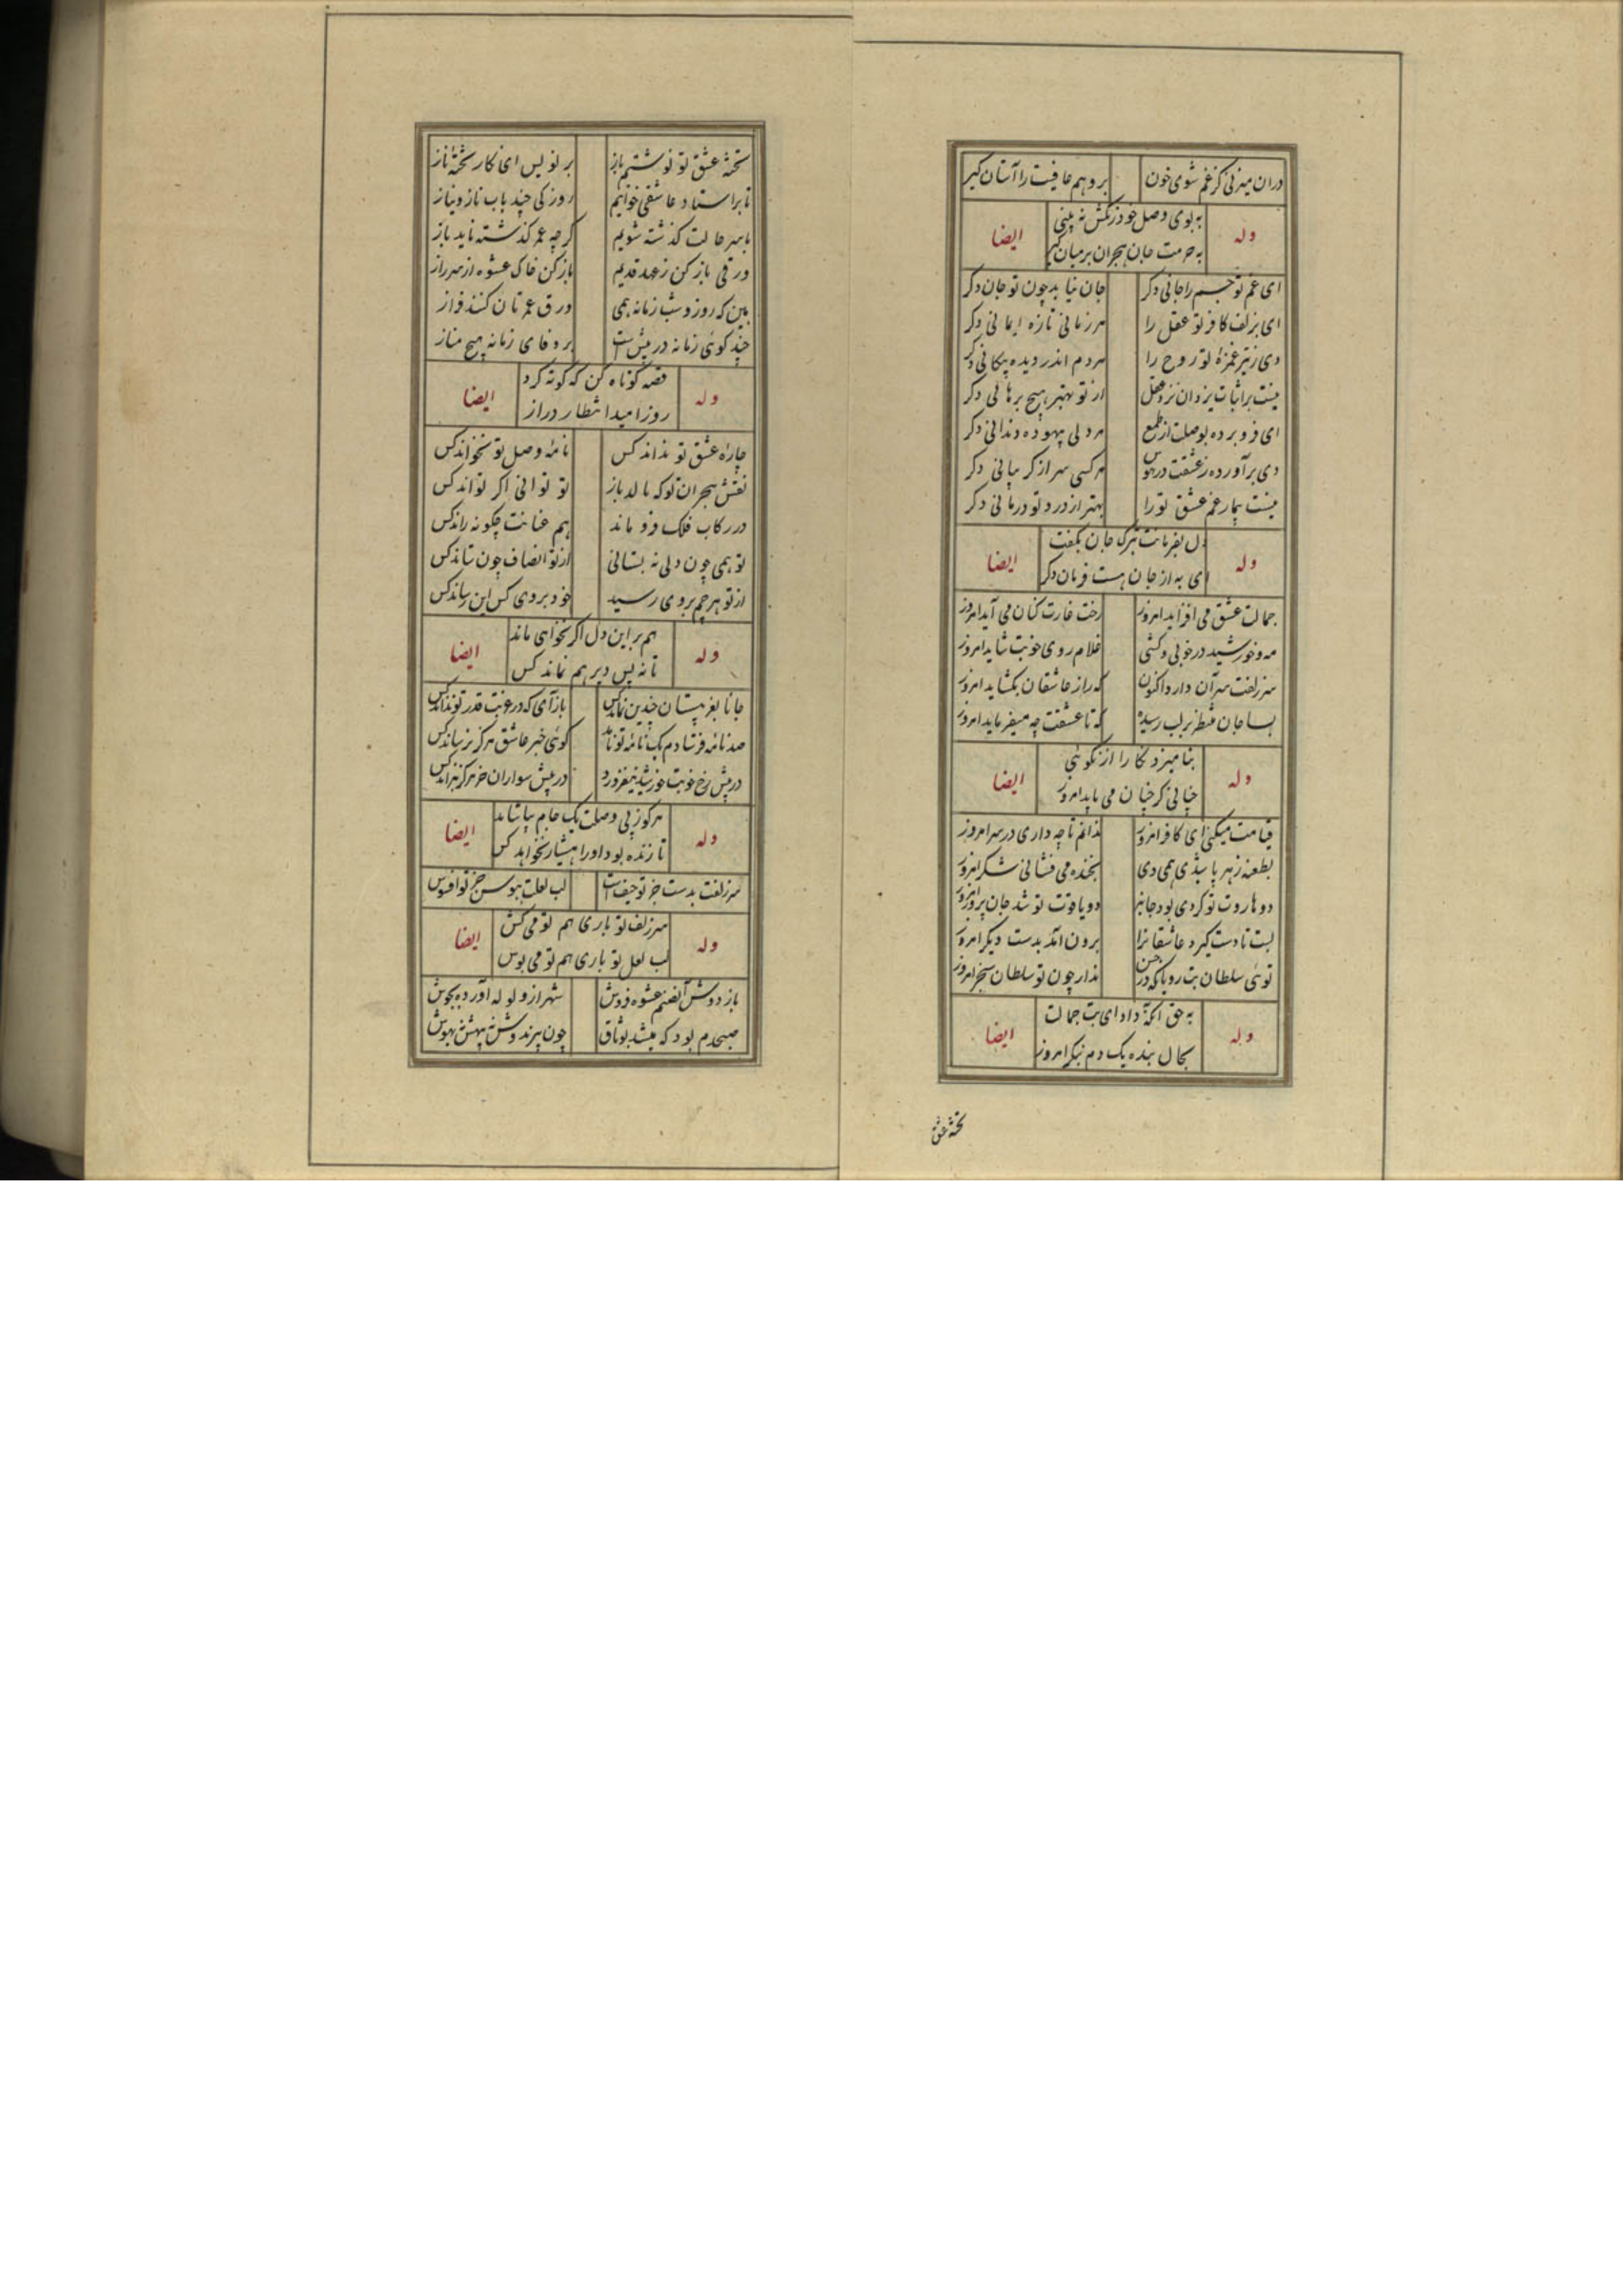 دران میزنی کز غم شوی خون بروهم عافیت را آستان گیر
وله به بوی وصل خود رنگش نه بینی ایضا
به حرمت جان هجران بر میان گیر
ای غم تو جسم را جانی دگر جان نیابد چون تو جان دگر
ای بزلف کافر تو عقل را هر زمانی تازه ایمانی دگر
وی ز تیر غمزهٔ تو روح را هر دم اندر دیده پیکانی دگر
نیست بر اثبات یزدان نزد عقل از تو بهتر هیچ برهانی دگر
ای فرو برده بوصلت از طمع هر دلی بیهوده دندانی دگر
وی برآورده ز عشقت در هوس هر کسی سر از گریبانی دگر
نیست بیمار غم عشق تو را بهتر از درد تو درمانی دگر
وله دل بفرمانت بترک جان بگفت ایضا
ای به از جان هست فرمان دگر
جمالت عشق می افزاید امروز رخت غارت کنان می آید امروز
مه و خورشید در خوبی و کشی غلام روی خوبت شاید امروز
سر زلفت سر آن دارد اکنون که راز عاشقان بگشاید امروز
بسا جان منتظر بر لب رسیده که تا عشقت چه میفرماید امروز
وله بنامیزد نگارا از نکوئی ایضا
چنانی کز جنان می باید امروز
قیامت میکنی ای کافر امروز ندانم تا چه داری در سر امروز
بطعنه زهر پاشیدی همی دی بخنده می فشانی شکر امروز
دو هاروت تو کردی بود جانبر دو یاقوت تو شد جان پرور امروز
لبت تا دست گیرد عاشقانرا برون آمد بدست دیگر امروز
توئی سلطان بت رویا که در حسن ندارد چون تو سلطان سنجر امروز
وله به حق آنکه داد ای بت جمالت ایضا
بحال بنده یک دم بنگر امروز
تختهٔ عشق
تختهٔ عشق تو نوشتم باز بر نویس ای نگار تختهٔ ناز
تا بر استاد عاشقی خوانیم روزکی چند باب ناز و نیاز
با سر حالت گذشته شویم گرچه عمر گذشته ناید باز
ورقی باز کن ز عهد قدیم باز کن خاک عشوه از سر راز
بین که روز و شب زمانه همی ورق عمر تان کند فراز
چند گوئی زمانه در پیش است بر وفای زمانه هیچ مناز
وله قصه کوتاه کن که کوته کرد ایضا
روز امید انتظار دراز
چارهٔ عشق تو نداند کس نامهٔ وصل تو نخواند کس
نقش هجران تو که مالد باز تو توانی اگر تواند کس
در رکاب فلک فرو ماند هم عنانت چگونه راند کس
تو همی چون دلی نه بستانی از تو انصاف چون ستاند کس
از تو هر چم بروی رسید خود بروی کس این رساند کس
وله هم بر این دل اگر نخواهی ماند ایضا
تا نه بس دیر هم نماند کس
جانا بغریبستان چندین نماند کس باز آی که در غربت قدر تو نداند کس
صد نامه فرستادم یک نامهٔ تو نامد گوئی خبر عاشق هرگز نرساند کس
در پیش رخ خوبت خورشید نیفروزد در پیش سواران خر هرگز نراند کس
وله هر کو ز پی وصلت یک جام بیاشامد ایضا
تا زنده بود او را هشیار نخواهد کس
سر زلفت بدست جز تو حیف است لب لعلت ببوس جز تو افسوس
وله سر زلف تو باری هم تو می کش ایضا
لب لعل تو باری هم تو می بوس
باز دوش آن صنم عشوه فروش شهر از ولوله آورده بجوش
صبحدم بود که میشد بوثاق چون پرندوش نه بیهش نه بهوش